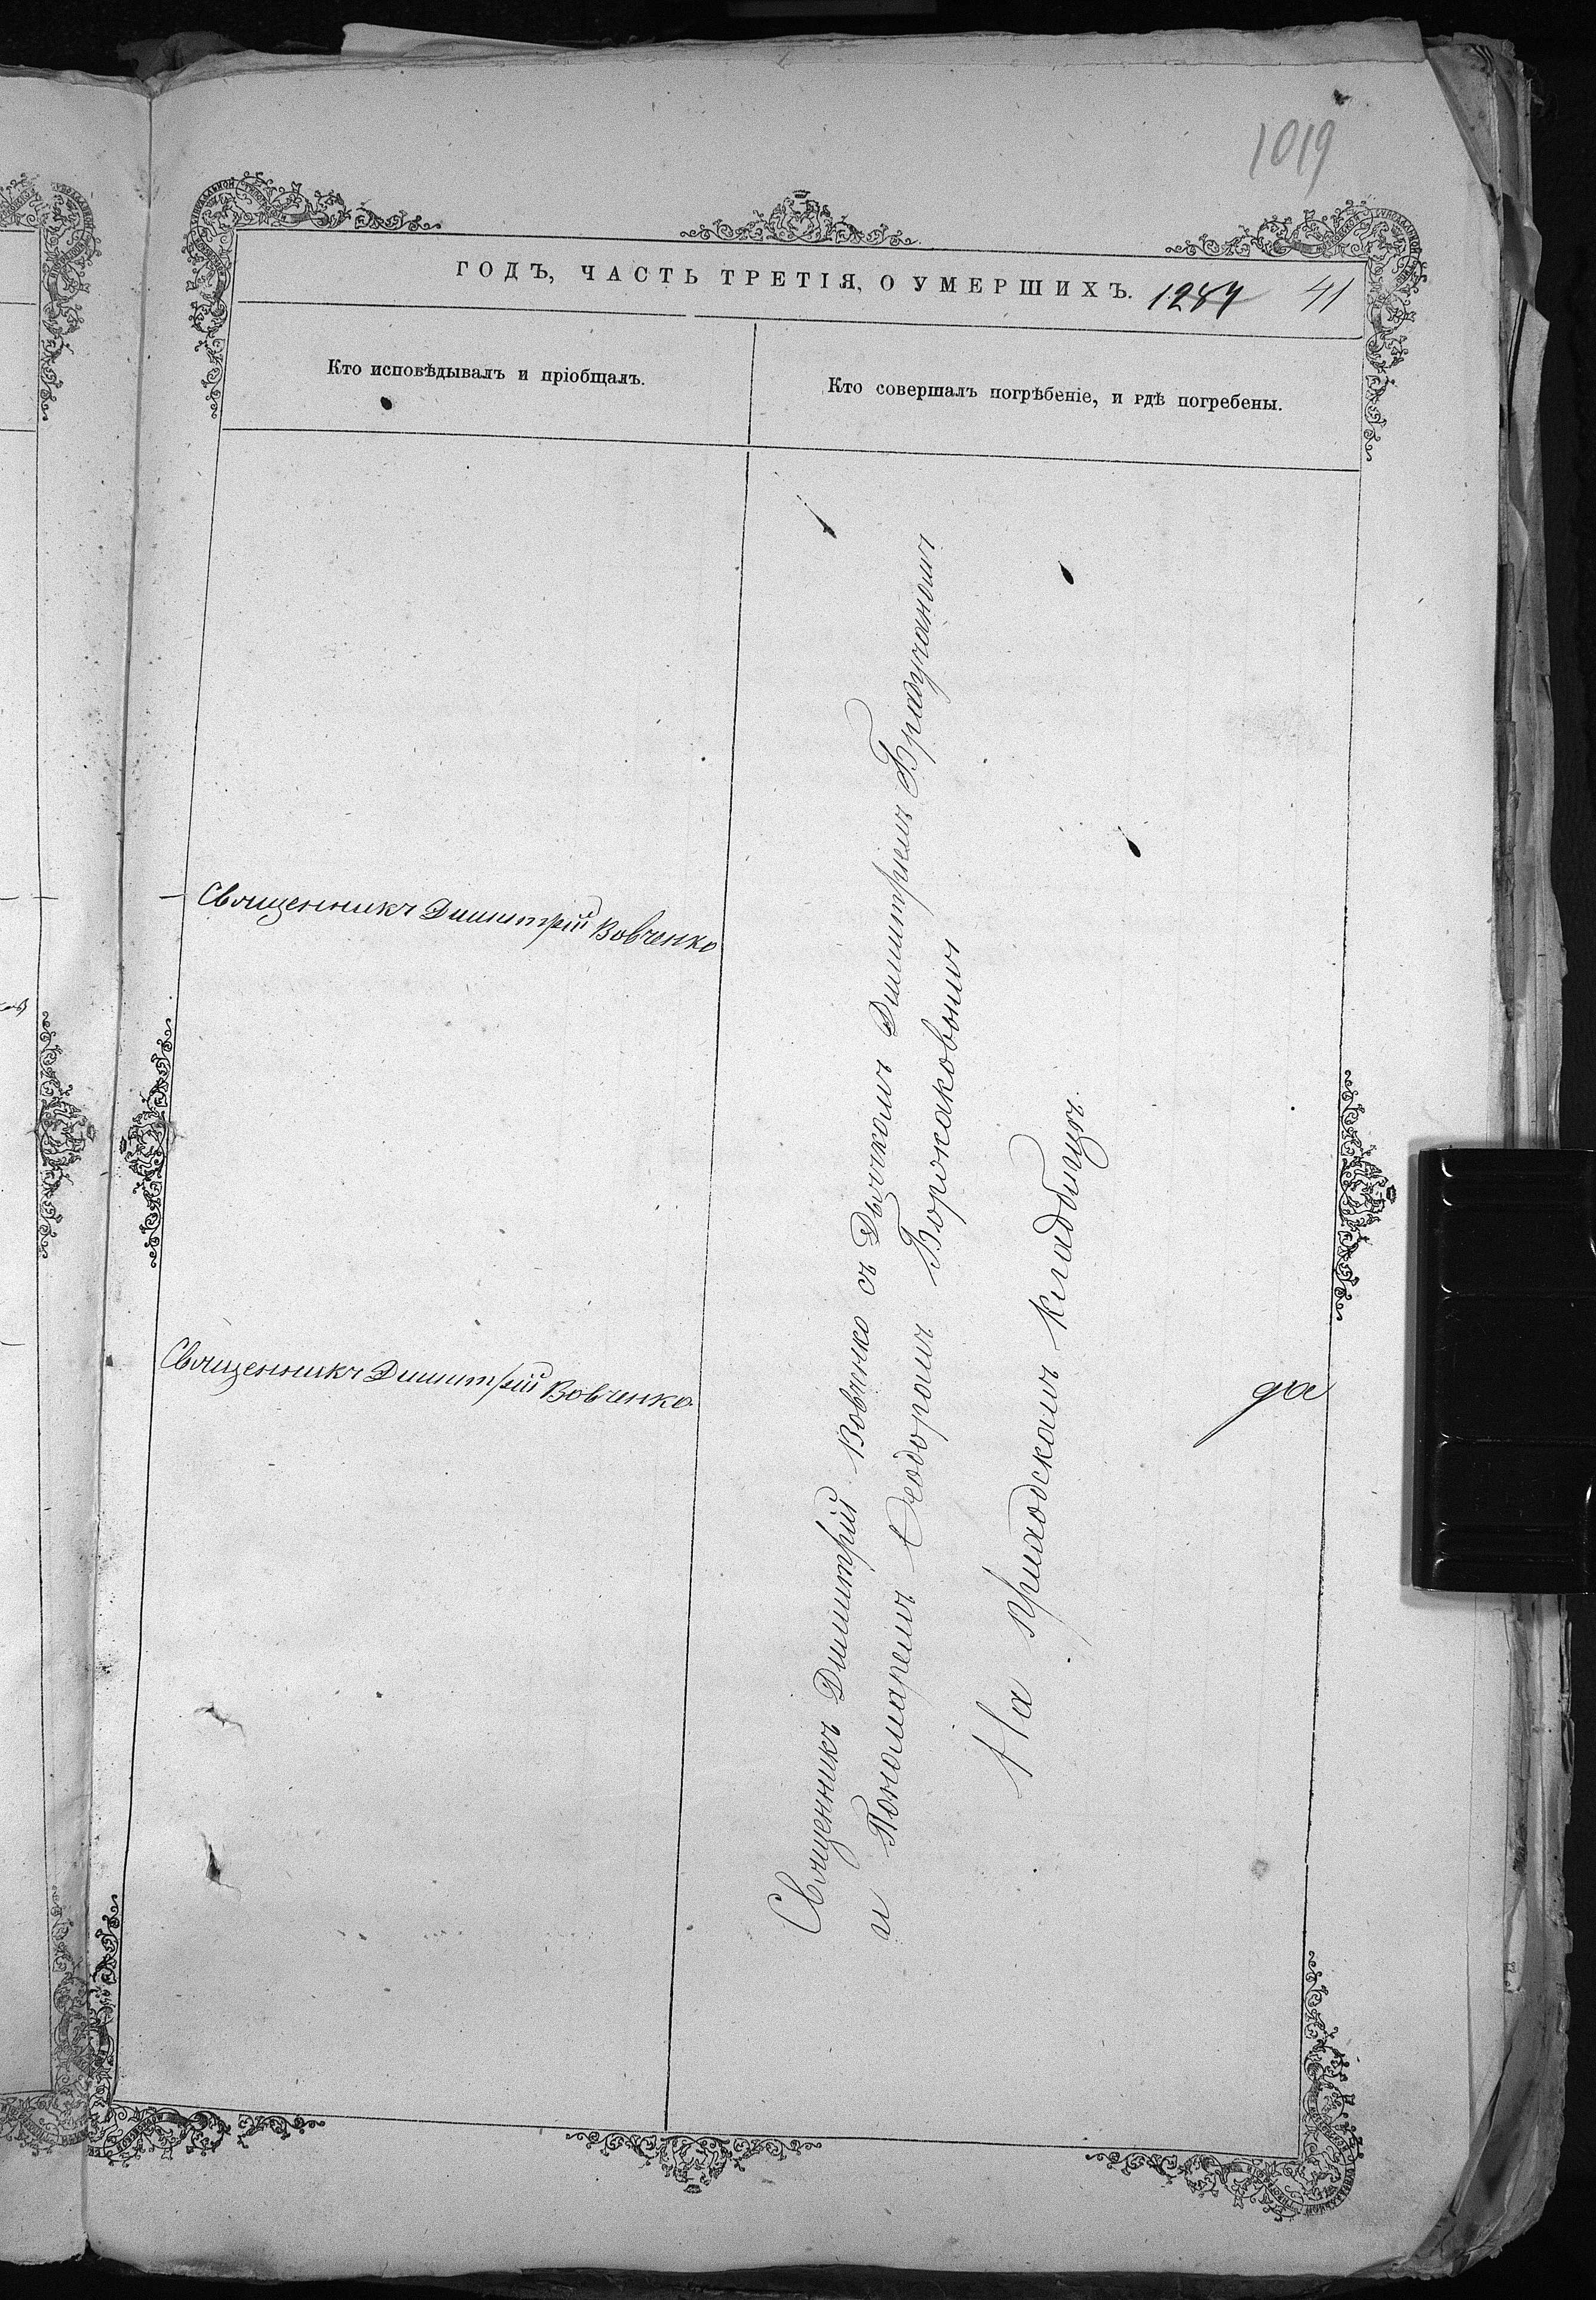 1019
ГОДЪ, ЧАСТЬ ТРЕТІЯ, О УМЕРШИХЪ. 1284 41
Кто исповѣдывалъ и пріобщалъ.
Кто совершалъ погрѣбеніе, и гдѣ погребены.
Священникъ Димитрій Вовченко
Священникъ Димитрій Вовченко
Священникъ Димитрій Вовченко съ Дьячкомъ Димитріемъ
и Пономаремъ Ѳеодоромъ
На приходскомъ кладбищѣ.